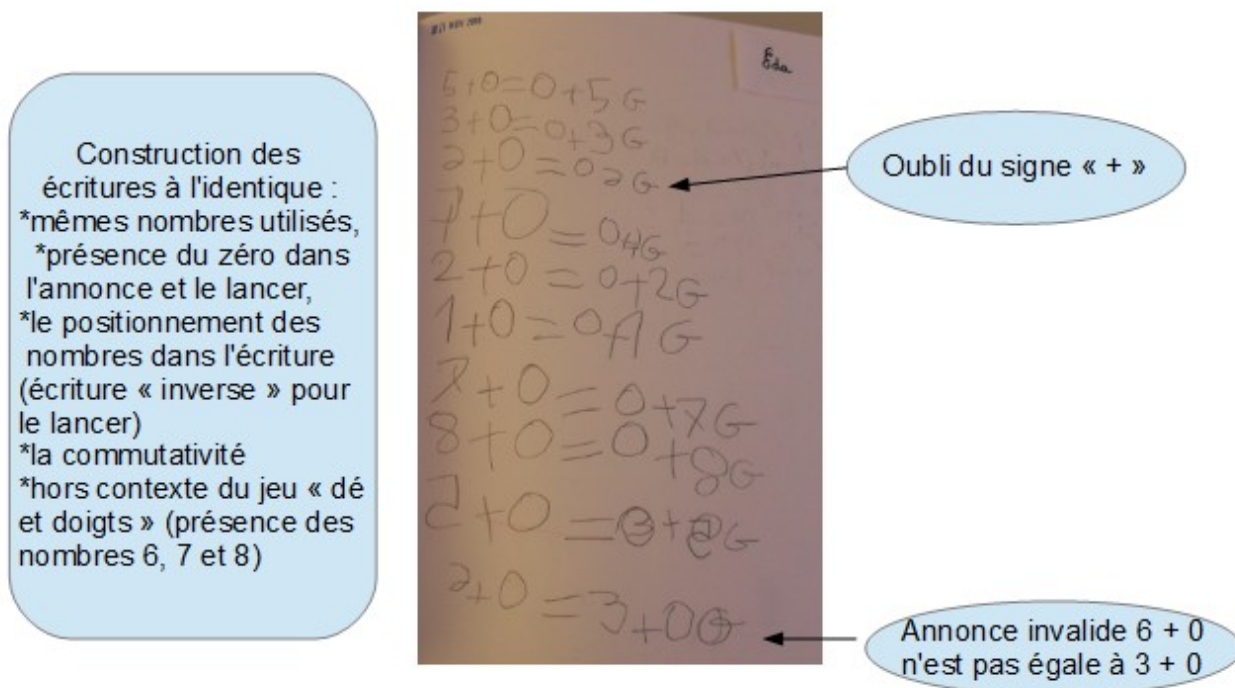 Construction des
écritures à l'identique :
*mêmes nombres utilisés,
*présence du zéro dans
l'annonce et le lancer,
*le positionnement des
nombres dans l'écriture
(écriture « inverse » pour
le lancer)
*la commutativité
*hors contexte du jeu « dé
et doigts » (présence des
nombres 6, 7 et 8)
NOV
Eda
5+0=0+5G
3+0=0+3G
2+0=02G
+0=0G
2+0=0+2G
1+0=01G
7+0=0+7G
8+0=0+8G
+0=+G
2+0=3+0G
Oubli du signe « + »
Annonce invalide 6 + 0
n'est pas égale à 3 + 0